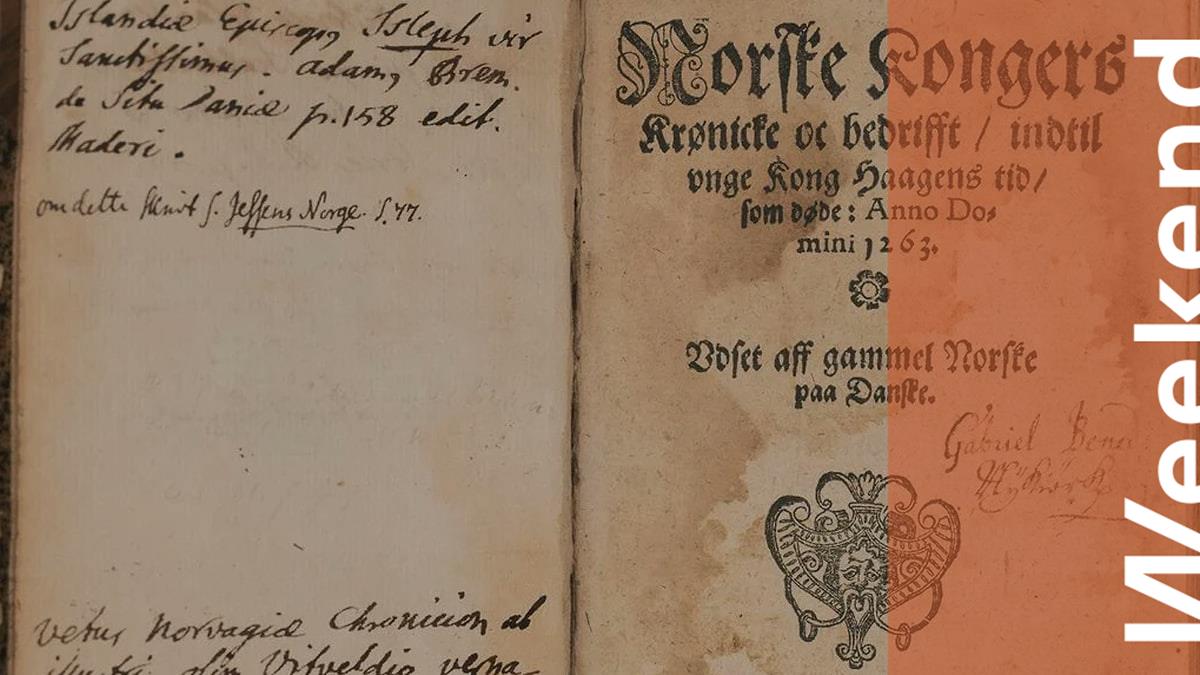 Islandiæ Episcop, Isleph vir
Sanctissimus. Adam, Brem.
de Situ Daniæ p.158 edit.
Maderi.
om dette skrivt s. Jessens Norge. S. 77.
vetus Norvagiæ Chronicion ab
olim Vitveldio verna-
Norske Kongers
Krønicke oc bedrifft / indtil
vnge Kong Haagens tid/
som døde: Anno Do-
mini 1263.
Vdset aff gammel Norske
paa Danske.
Gabriel
Weekend